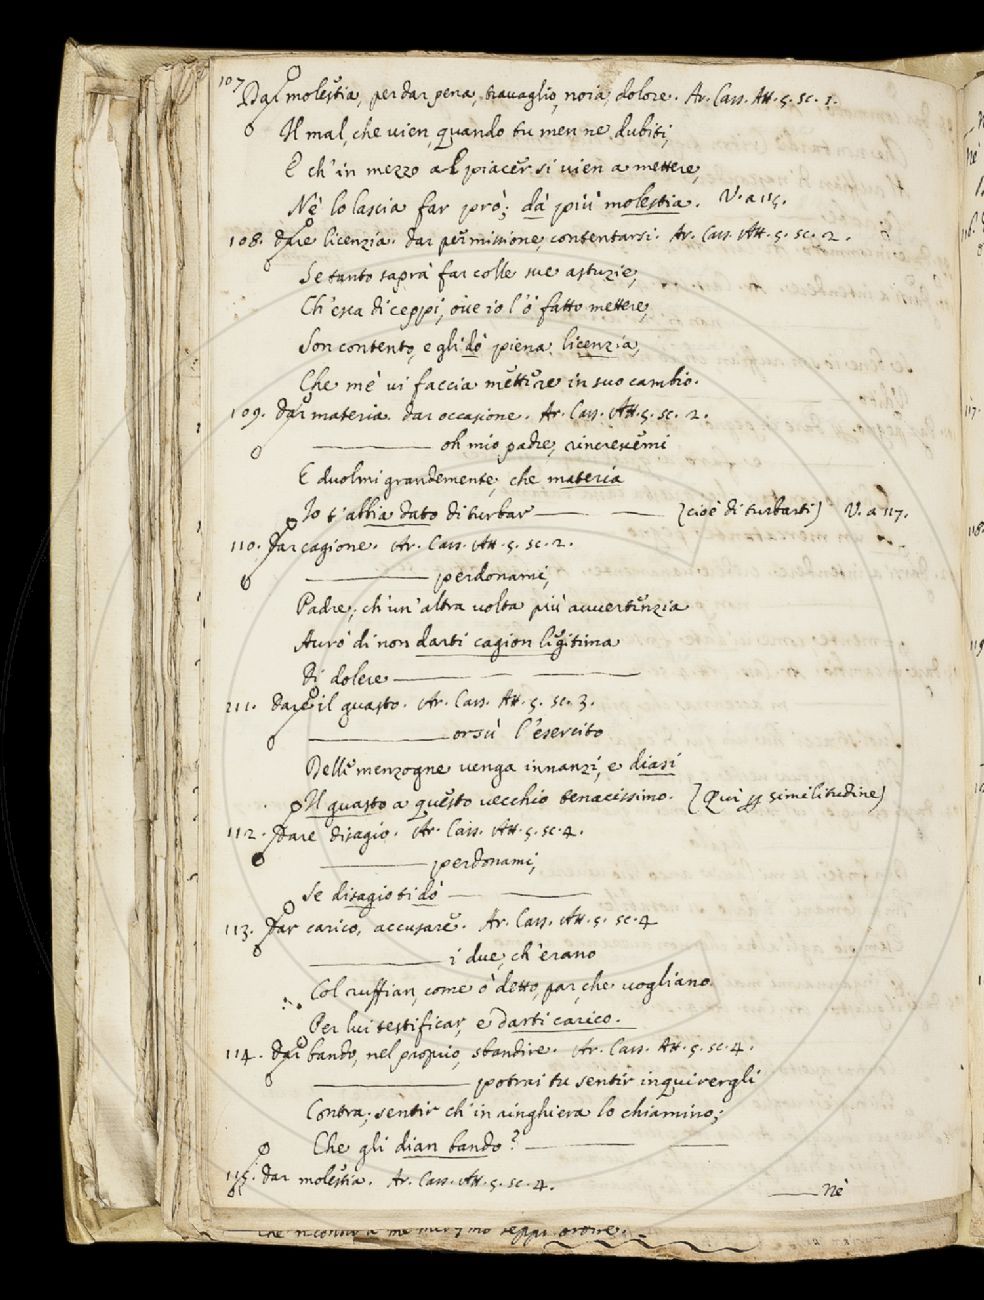 107. Dar molestia, per dar pena, travaglio, noia, dolore. Ar. Cass. Att. 5. sc. 1.
Il mal, che uien, quando tu men ne dubiti,
E ch'in mezzo al piacer si uien a mettere,
Nè lo lascia far prò; dà più molestia. V. a 115.
108. dare licenzia. dar permissione, contentarsi. Ar. Cass. Att. 5. sc. 2.
Se tanto saprà far colle sue astuzie,
Ch'esca di ceppi, oue io l'ò fatto mettere,
Son contento, e gli dò piena licenzia,
Che mè ui faccia mettere in suo cambio.
109. dar materia. dar occasione. Ar. Cass. Att. 5. sc. 2.
oh mio padre, rincrescemi
E duolmi grandemente, che materia
Io t'abbia dato di turbar (cioè di turbarti) V. a 117.
110. Dar cagione. Ar. Cass. Att. 5. sc. 2.
perdonami,
Padre, ch'un'altra uolta più auuertenzia
Aurò di non darti cagion ligitima
Di dolere
111. dare il guasto. Ar. Cass. Att. 5. sc. 3.
orsù l'esercito
Delle menzogne uenga innanzi, e diasi
Il guasto a questo uecchio tenacissimo. (Qui similitudine)
112. Dare disagio. Ar. Cass. Att. 5. sc. 4.
perdonami,
Se disagio ti dò
113. Dar carico, accusare. Ar. Cass. Att. 5. sc. 4
i due, ch'erano
Col ruffian, come ò detto, par, che uogliano
Per lui testificar, e Darti carico.
114. dar bando, nel propio, sbandire. Ar. Cass. Att. 5. sc. 4.
potrai tu sentir inquirergli
Contra; sentir ch'in ringhiera lo chiamino;
Che gli dian bando?
115. dar molestia. Ar. Cass. Att. 5. sc. 4.
Nè